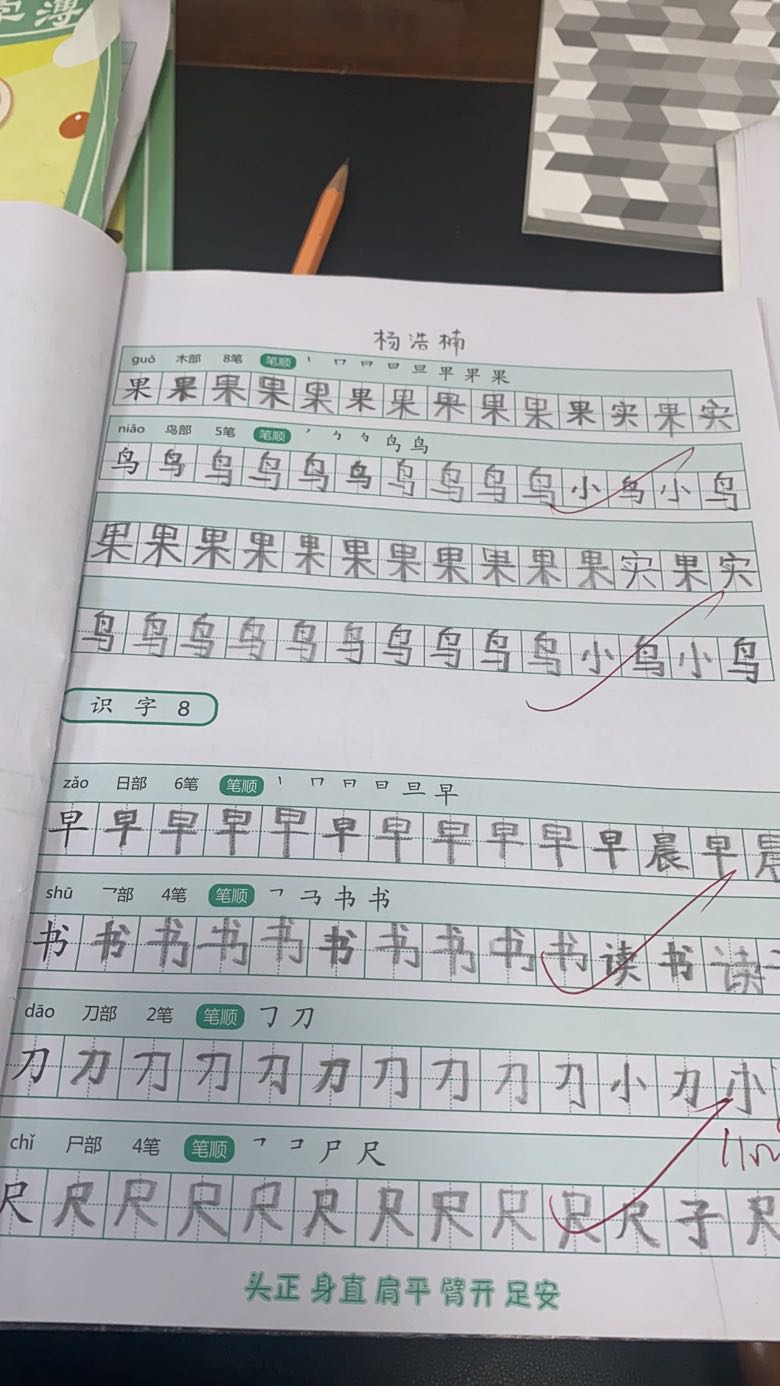 字薄
杨浩楠
guǒ 木部 8笔 笔顺 丨 冂 日 日 旦 早 果 果
果 果 果 果 果 果 果 果 果 果 果 实 果 实
niǎo 鸟部 5笔 笔顺 ノ 勹 勺 鸟 鸟
鸟 鸟 鸟 鸟 鸟 鸟 鸟 鸟 鸟 鸟 小 鸟 小 鸟
果 果 果 果 果 果 果 果 果 果 果 实 果 实
鸟 鸟 鸟 鸟 鸟 鸟 鸟 鸟 鸟 鸟 小 鸟 小 鸟
识字 8
zǎo 日部 6笔 笔顺 丨 冂 日 日 旦 早
早 早 早 早 早 早 早 早 早 早 早 晨 早 晨
shū 乛部 4笔 笔顺 乛 马 书 书
书 书 书 书 书 书 书 书 书 书 读 书 读
dāo 刀部 2笔 笔顺 丁 刀
刀 刀 刀 刀 刀 刀 刀 刀 刀 刀 小 刀 小
chǐ 尸部 4笔 笔顺 乛 コ 尸 尺
尺 尺 尺 尺 尺 尺 尺 尺 尺 尺 尺 子 尺
头正 身直 肩平 臂开 足安